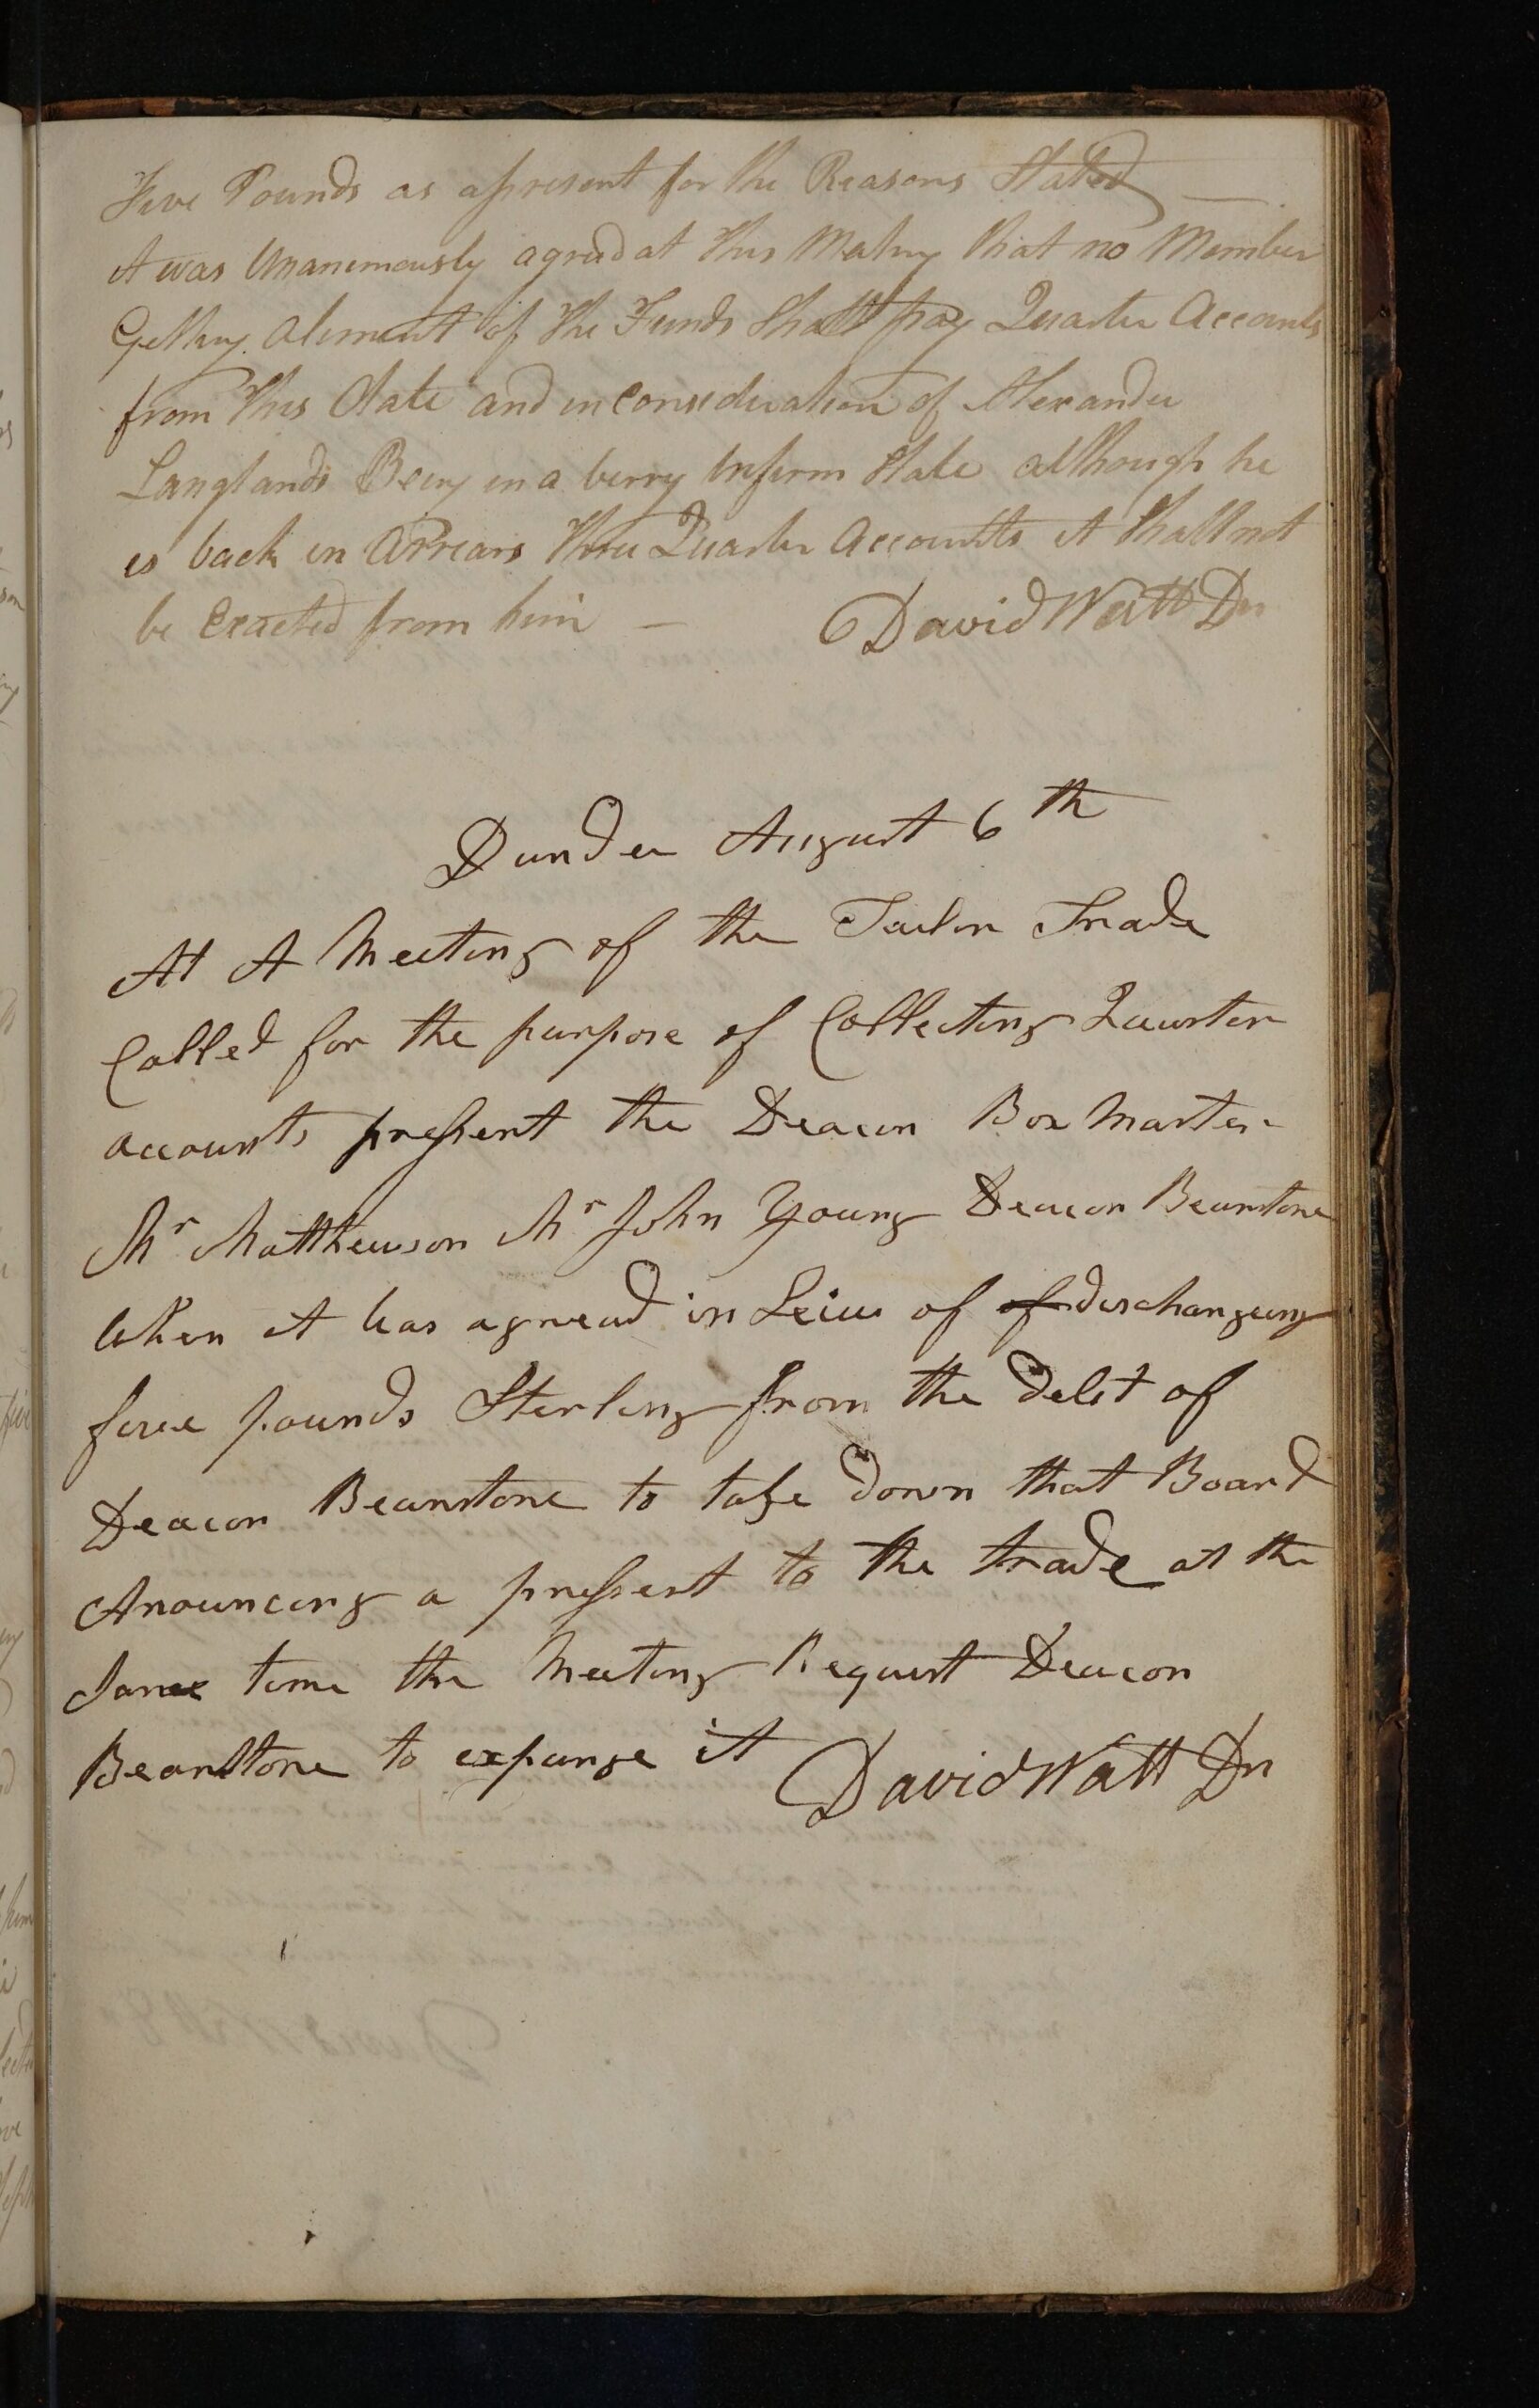 Five Pounds as apresent for the Reasons Stated
It was Unanimously agreed at this Meeting that no Member
Getting Aliment of the Funds Shall pay Quarter Accounts
from this date and in Consideration of Alexander
Langlands Being in a verry Infirm State although he
is back in Arrears three Quarter Accountts it Shall not
be Exacted from him —
David Watt Dn
Dundee August 6th
At A Meeting of the Tailor Trade
Called for the purpose of Collecting Quarter
accounts present the Deacon Box Master
Mr Matthewson Mr John Young Deacon Beanstone
When it was agreead in Leiu of of dischargeing
five pounds Sterling from the Debt of
Deacon Beanstone to take down that Board
Anouncing a present to the trade at the
Same time the Meeting Request Deacon
Beanstone to expunge it
David Watt Dn